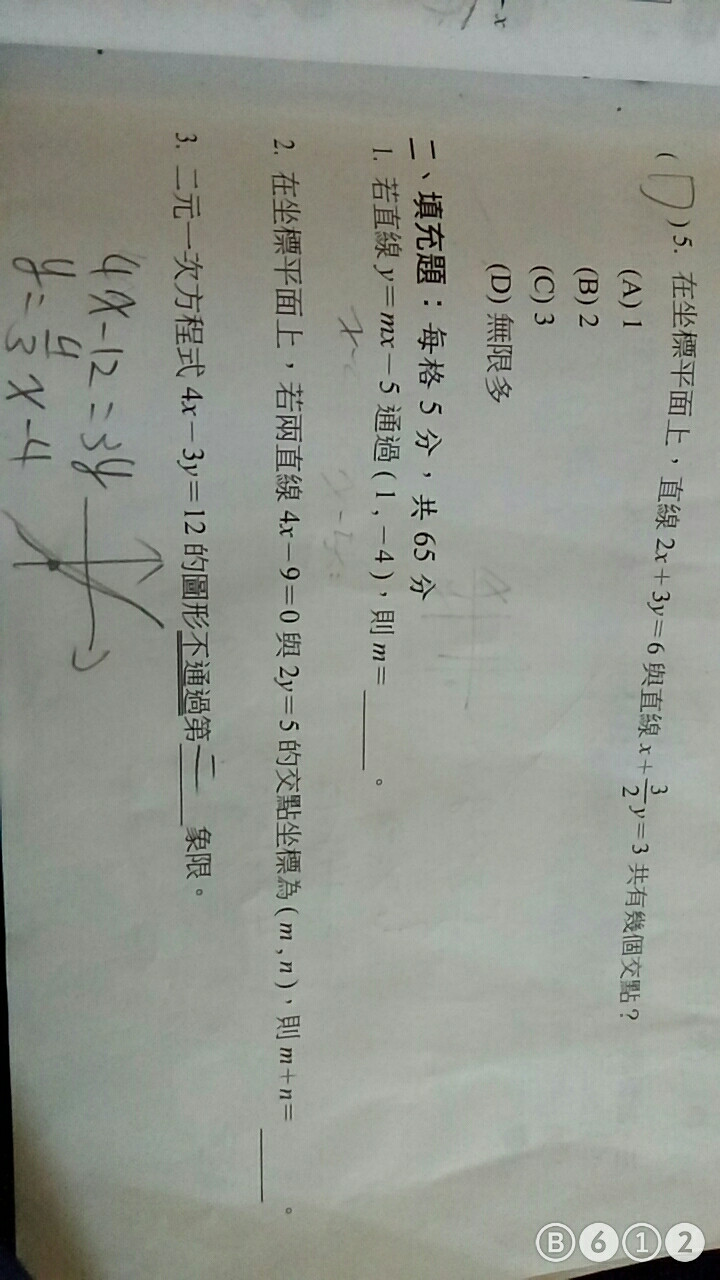 -x
( D ) 5. 在坐標平面上，直線 2x+3y=6 與直線 x+\frac{3}{2}y=3 共有幾個交點？
(A) 1
(B) 2
(C) 3
(D) 無限多
二、填充題：每格 5 分，共 65 分
1. 若直線 y=mx-5 通過 (1,-4)，則 m=______。
2. 在坐標平面上，若兩直線 4x-9=0 與 2y=5 的交點坐標為 (m,n)，則 m+n=______。
3. 二元一次方程式 4x-3y=12 的圖形不通過第二象限。
4x-12=3y
y=\frac{4}{3}x-4
B612